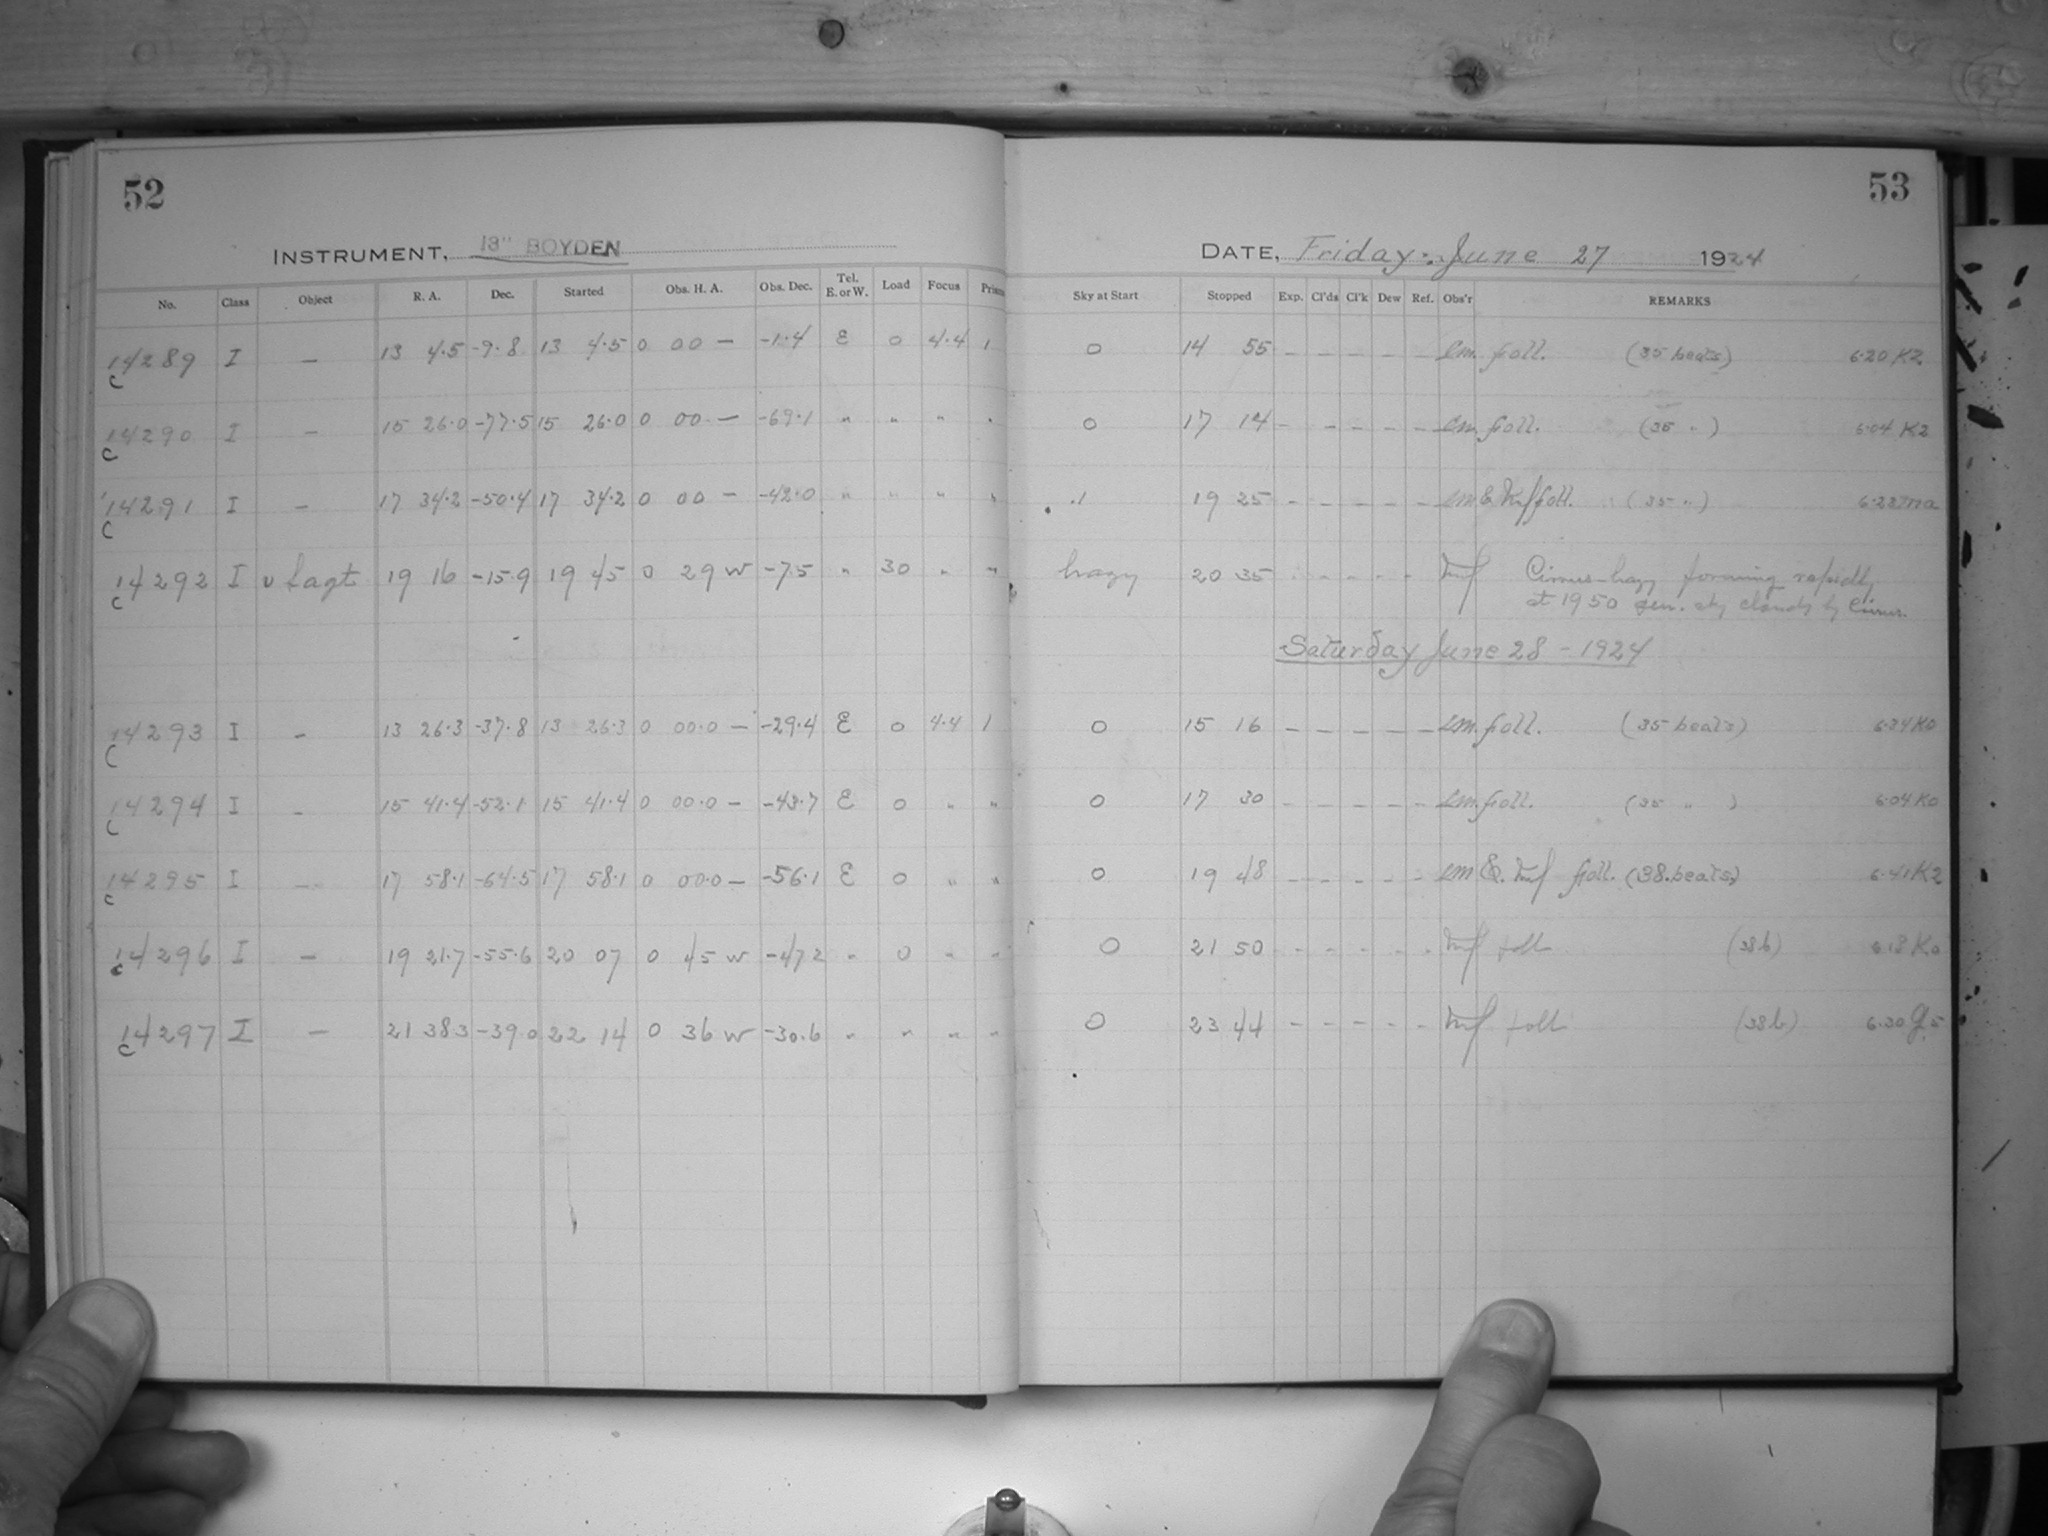 52
53
INSTRUMENT, 13" BOYDEN
DATE, Friday. June 27 1924
No. Class Object R. A. Dec. Started Obs. H. A. Obs. Dec. Tel. E. or W. Load Focus Prism
Sky at Start Stopped Exp. Cl'ds Cl'k Dew Ref. Obs'r REMARKS
14289 I — 13 4.5 -9.8 13 4.5 0 00 — -1.4 E 0 4.4 1 0 14 55 - - - - - em. foll. (35 beats) 6.20 K2
c
14290 I — 15 26.0 -77.5 15 26.0 0 00 — -69.1 " " " " 0 17 14 - - - - - em. foll. (35 " ) 6.04 K2
c
14291 I — 17 34.2 -50.4 17 34.2 0 00 — -42.0 " " " " .1 19 25 - - - - - em & foll. (35 " ) 6.23 Ma
c
14292 I υ Sagt 19 16 -15.9 19 45 0 29 W -7.5 " 30 " " hazy 20 35 - - - - - Cirrus-hazy forming rapidly
c
at 1950 gen. sky cloudy by Cirrus.
Saturday June 28 - 1924
14293 I - 13 26.3 -37.8 13 26.3 0 00.0 — -29.4 E 0 4.4 1 0 15 16 - - - - - em. foll. (35 beats) 6.34 K0
c
14294 I - 15 41.4 -52.1 15 41.4 0 00.0 — -43.7 E 0 " " 0 17 30 - - - - - em. foll. (35 " ) 6.04 K0
c
14295 I — 17 58.1 -64.5 17 58.1 0 00.0 — -56.1 E 0 " " 0 19 48 - - - - - em & foll. (38. beats) 6.41 K2
c
14296 I — 19 21.7 -55.6 20 07 0 45 W -47.2 " 0 " " 0 21 50 - - - - - foll (38b) 6.18 K0
c
14297 I — 21 38.3 -39.0 22 14 0 36 W -30.6 " " " " 0 23 44 - - - - - foll (38b) 6.30 G5
c